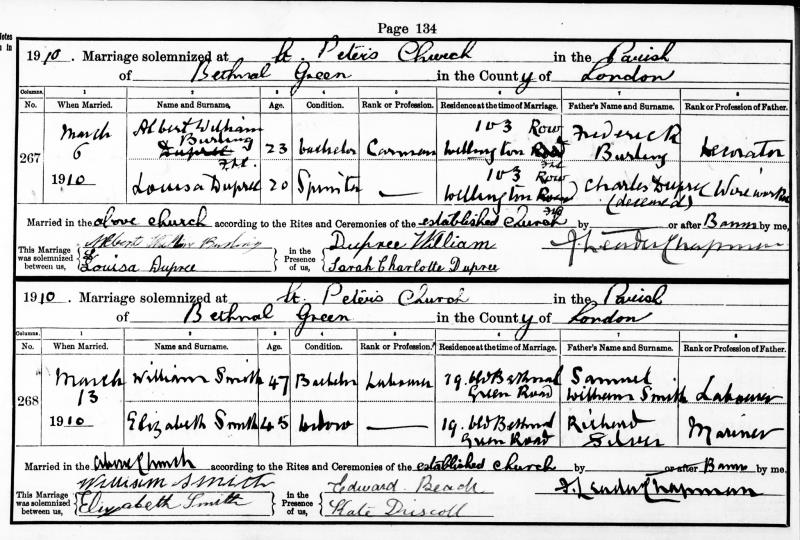 Page 134
1910. Marriage solemnized at St. Peter's Church in the Parish
of Bethnal Green in the County of London
Columns. 1 2 3 4 5 6 7 8
No. When Married. Name and Surname. Age. Condition. Rank or Profession. Residence at the time of Marriage. Father's Name and Surname. Rank or Profession of Father.
267 March 6 1910 Albert William Burling Dupree 23 bachelor Carman 103 Wellington Road Row Frederick Burling Decorator
Louisa Dupree 20 Spinster — 103 Wellington Road Row Charles Dupree (deceased) Wire worker
Married in the above church according to the Rites and Ceremonies of the established Church by or after Banns by me,
This Marriage was solemnized between us, Albert William Burling
Louisa Dupree
in the Presence of us, Dupree William
Sarah Charlotte Dupree
J. Leader Chapman
1910. Marriage solemnized at St. Peter's Church in the Parish
of Bethnal Green in the County of London
Columns. 1 2 3 4 5 6 7 8
No. When Married. Name and Surname. Age. Condition. Rank or Profession. Residence at the time of Marriage. Father's Name and Surname. Rank or Profession of Father.
268 March 13 1910 William Smith 47 Bachelor Labourer 79. Old Bethnal Green Road Samuel William Smith Labourer
Elizabeth Smith 45 widow — 19. Old Bethnal Green Road Richard Mariner
Married in the above Church according to the Rites and Ceremonies of the established church by or after Banns by me,
This Marriage was solemnized between us, William Smith
Elizabeth Smith
in the Presence of us, Edward Beach
Kate Driscoll
J. Leader Chapman